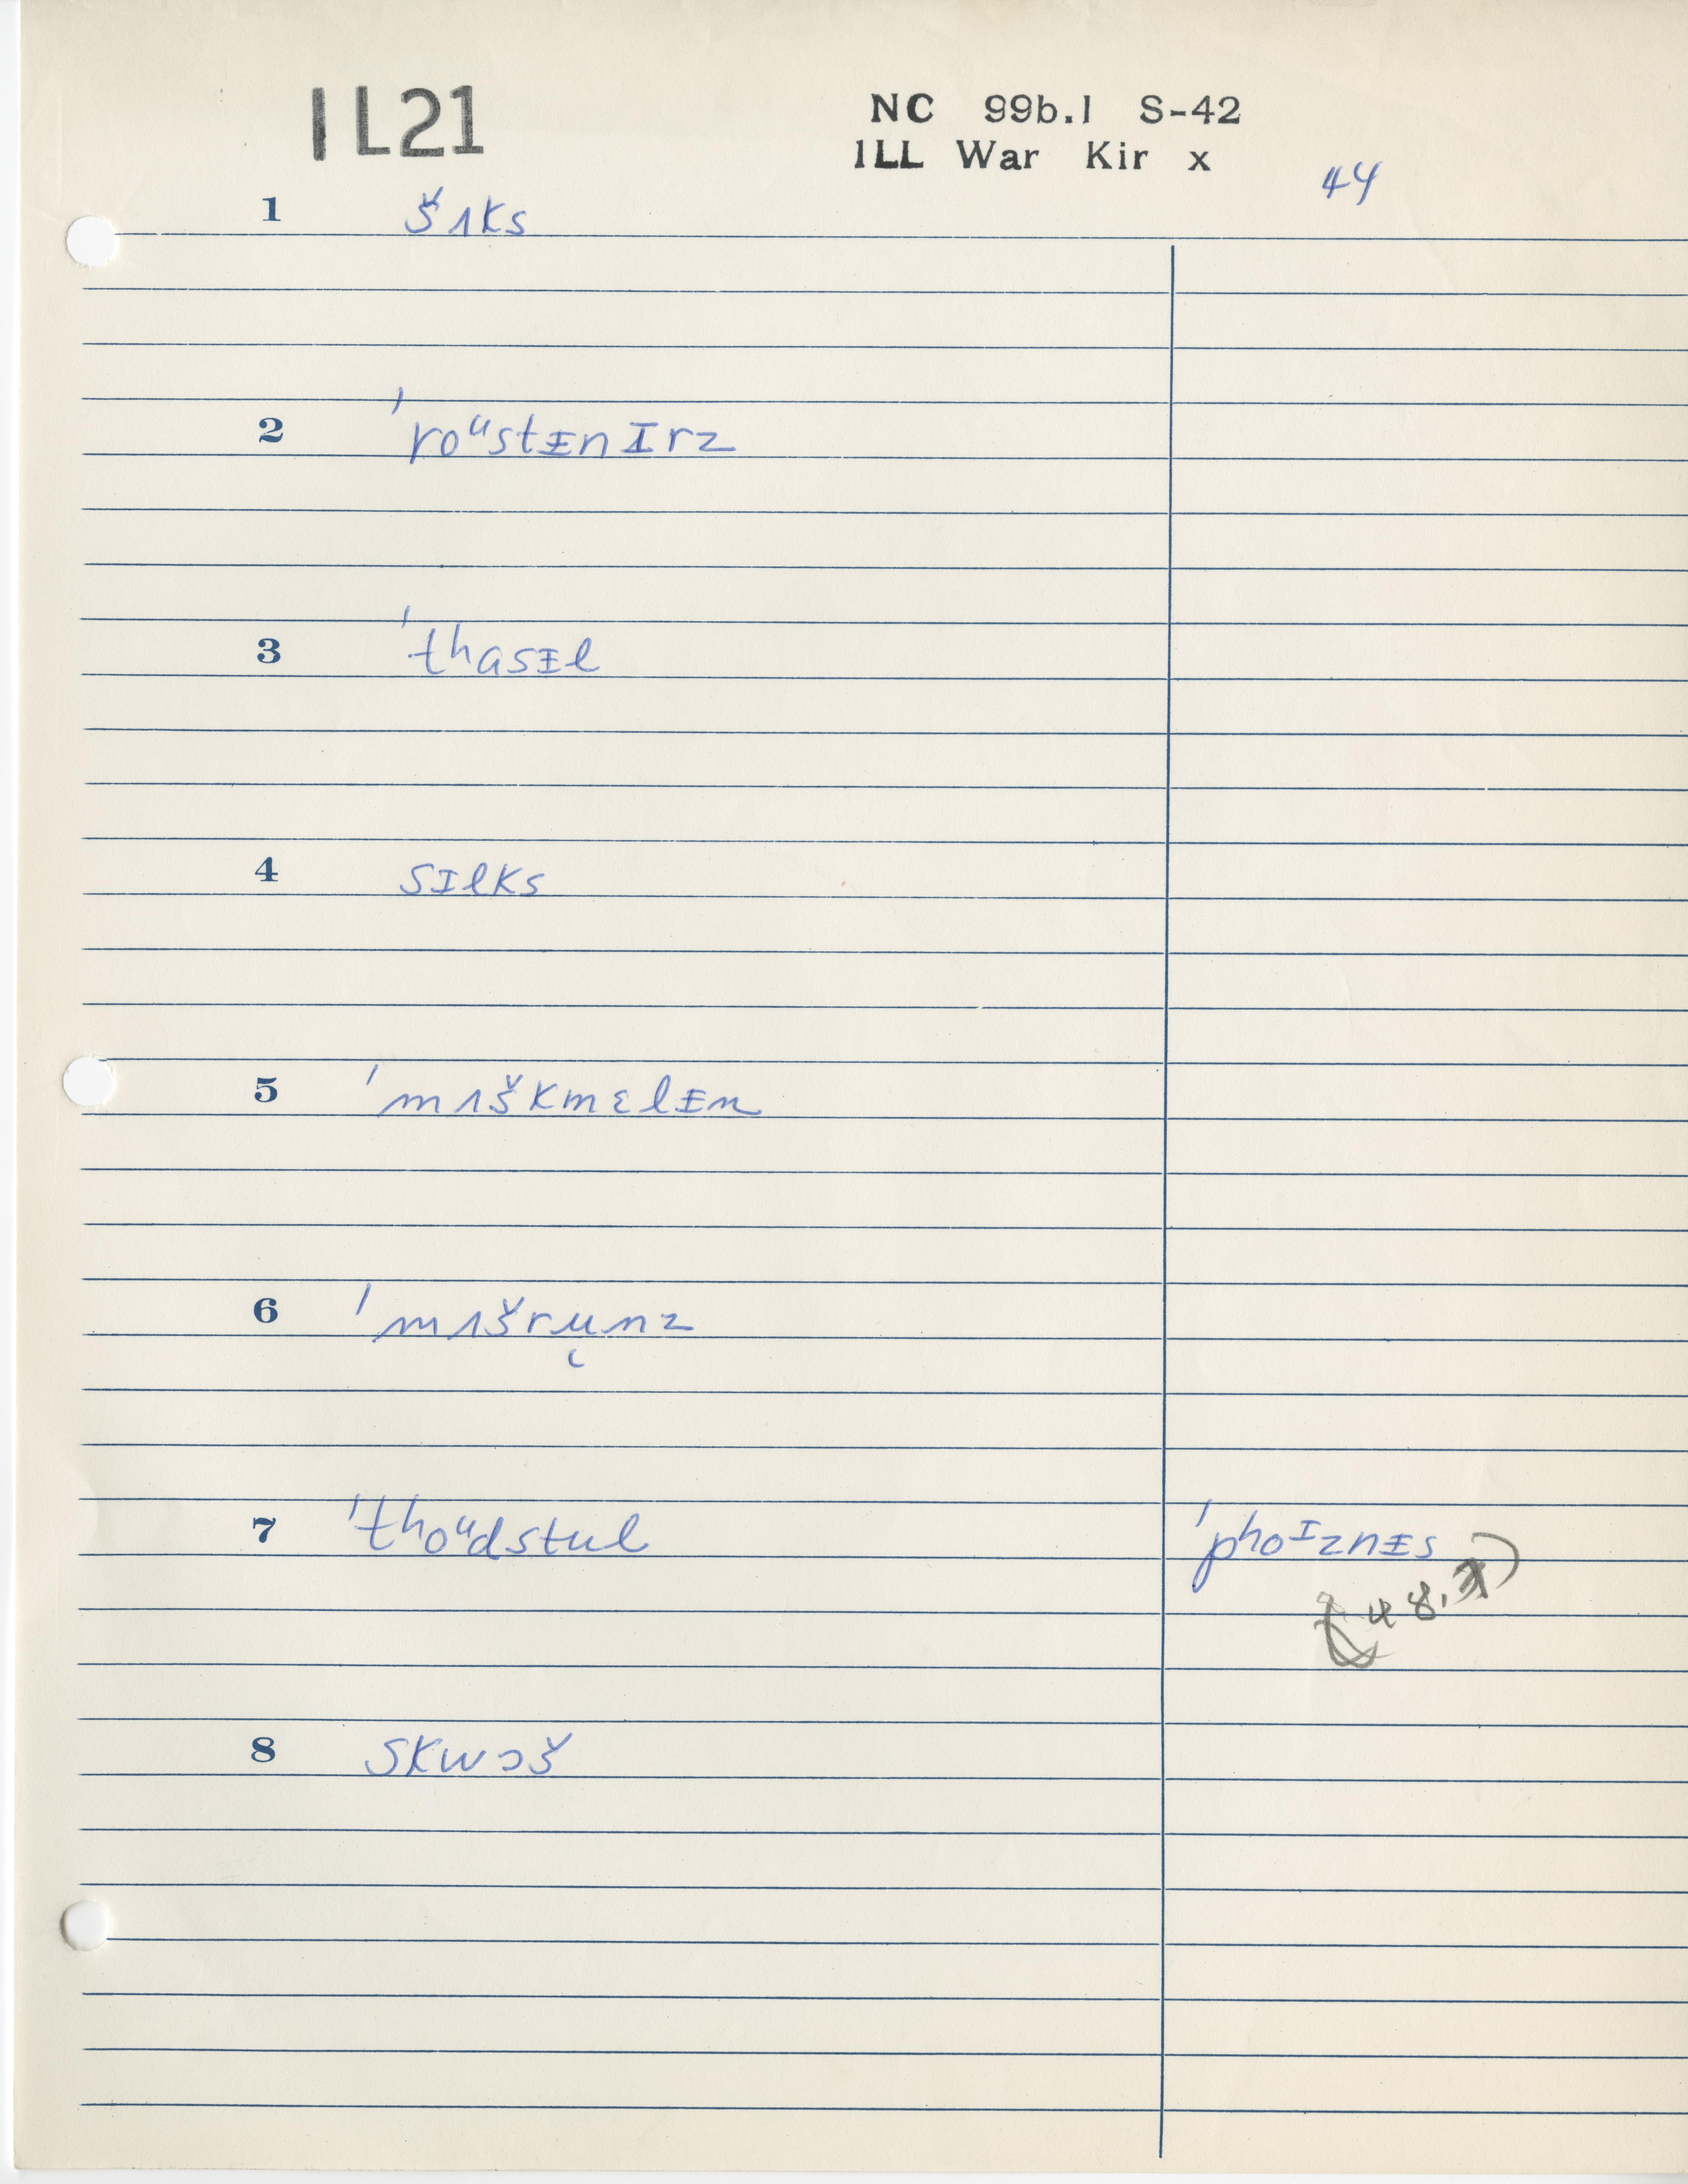 IL21
NC 99b.1 S-42
ILL War Kir x
44
1 šʌks
2 ˈroᵘstᵻnɪrz
3 ˈthasᵻl
4 sɪlks
5 ˈmʌškmɛlᵻn
6 ˈmʌšrunz
7 ˈthoᵘdstul ˈphoᴵznᵻs
8 skwɔš